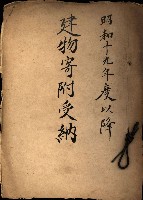 昭和十九年度以降
建物寄附受納